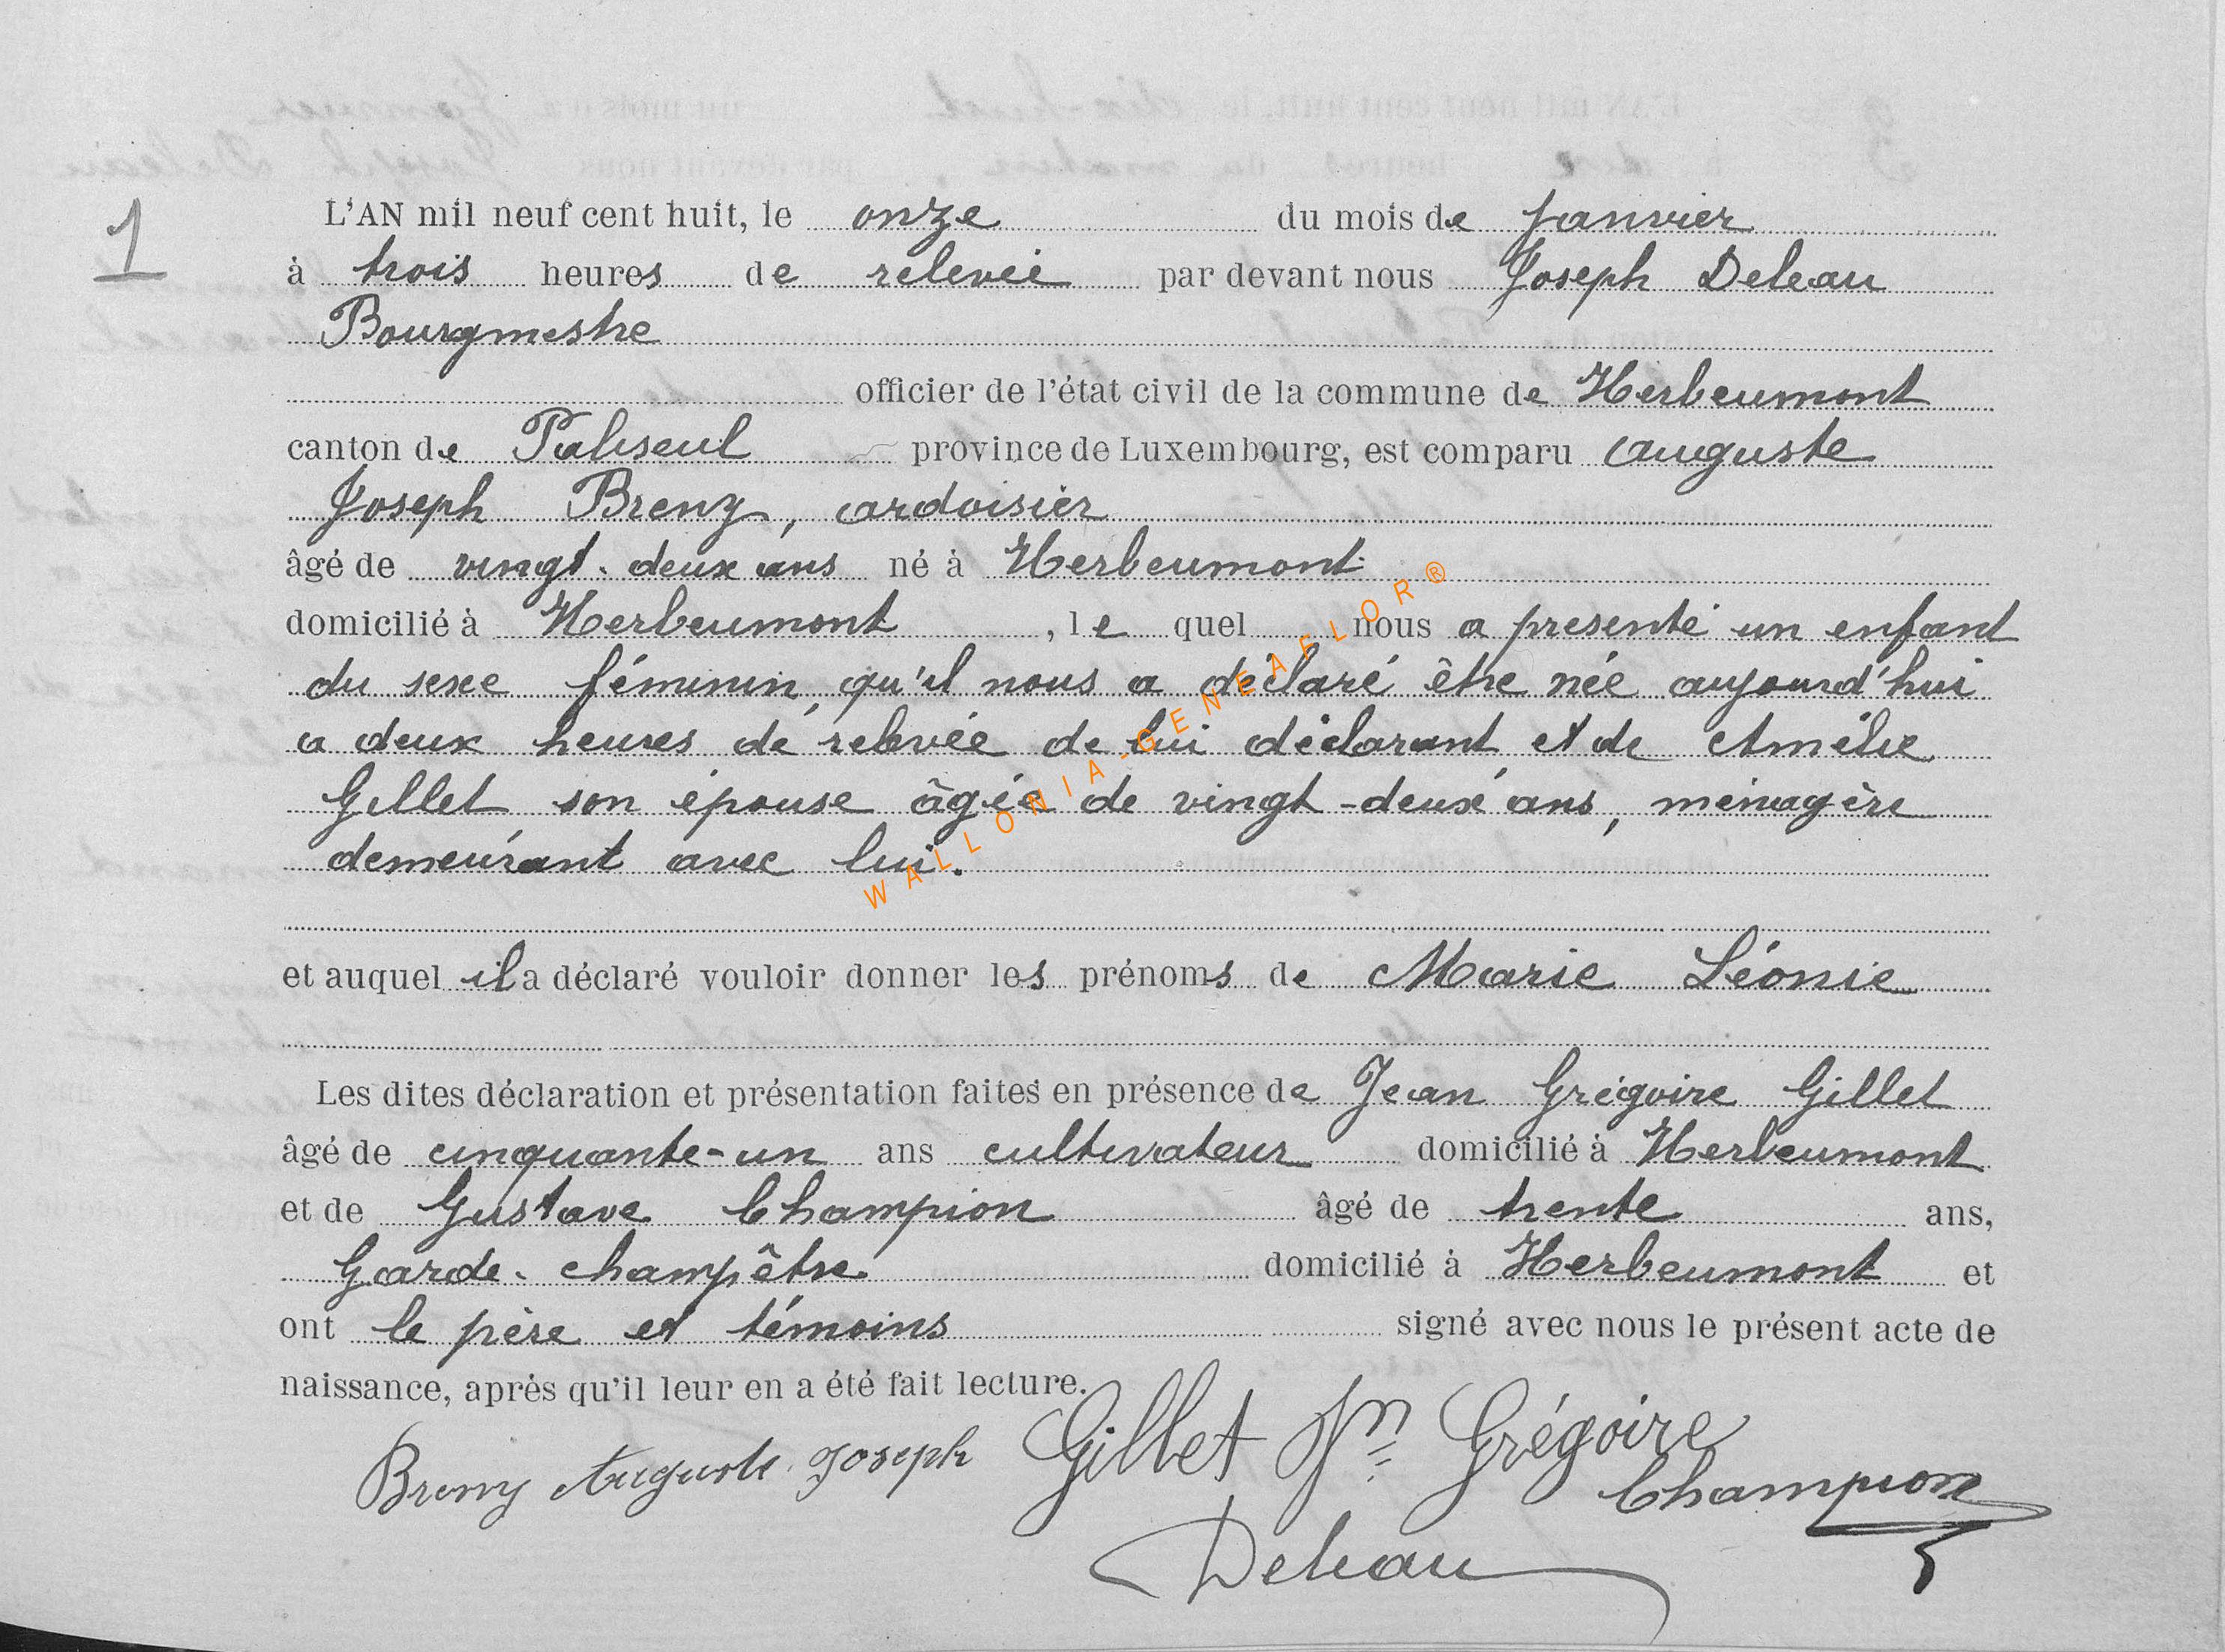 1
L'AN mil neuf cent huit, le onze du mois de Janvier
à trois heures de relevée par devant nous Joseph Deleau
Bourgmestre
officier de l'état civil de la commune de Herbeumont
canton de Paliseul province de Luxembourg, est comparu Auguste
Joseph Breny, ardoisier
âgé de vingt-deux ans né à Herbeumont
domicilié à Herbeumont, le quel nous a présenté un enfant
du sexe féminin, qu'il nous a déclaré être née aujourd'hui
a deux heures de relevée de lui déclarant et de Amélie
Gillet son épouse âgée de vingt-deux ans, ménagère
demeurant avec lui.
et auquel il a déclaré vouloir donner les prénoms de Marie Léonie
Les dites déclaration et présentation faites en présence de Jean Grégoire Gillet
âgé de cinquante-un ans cultivateur domicilié à Herbeumont
et de Gustave Champion âgé de trente ans,
Garde-champêtre domicilié à Herbeumont et
ont le père et témoins signé avec nous le présent acte de
naissance, après qu'il leur en a été fait lecture.
Breny Auguste Joseph Gillet Jn Grégoire
Champion
Deleau
WALLONIA-GENEAFLOR®